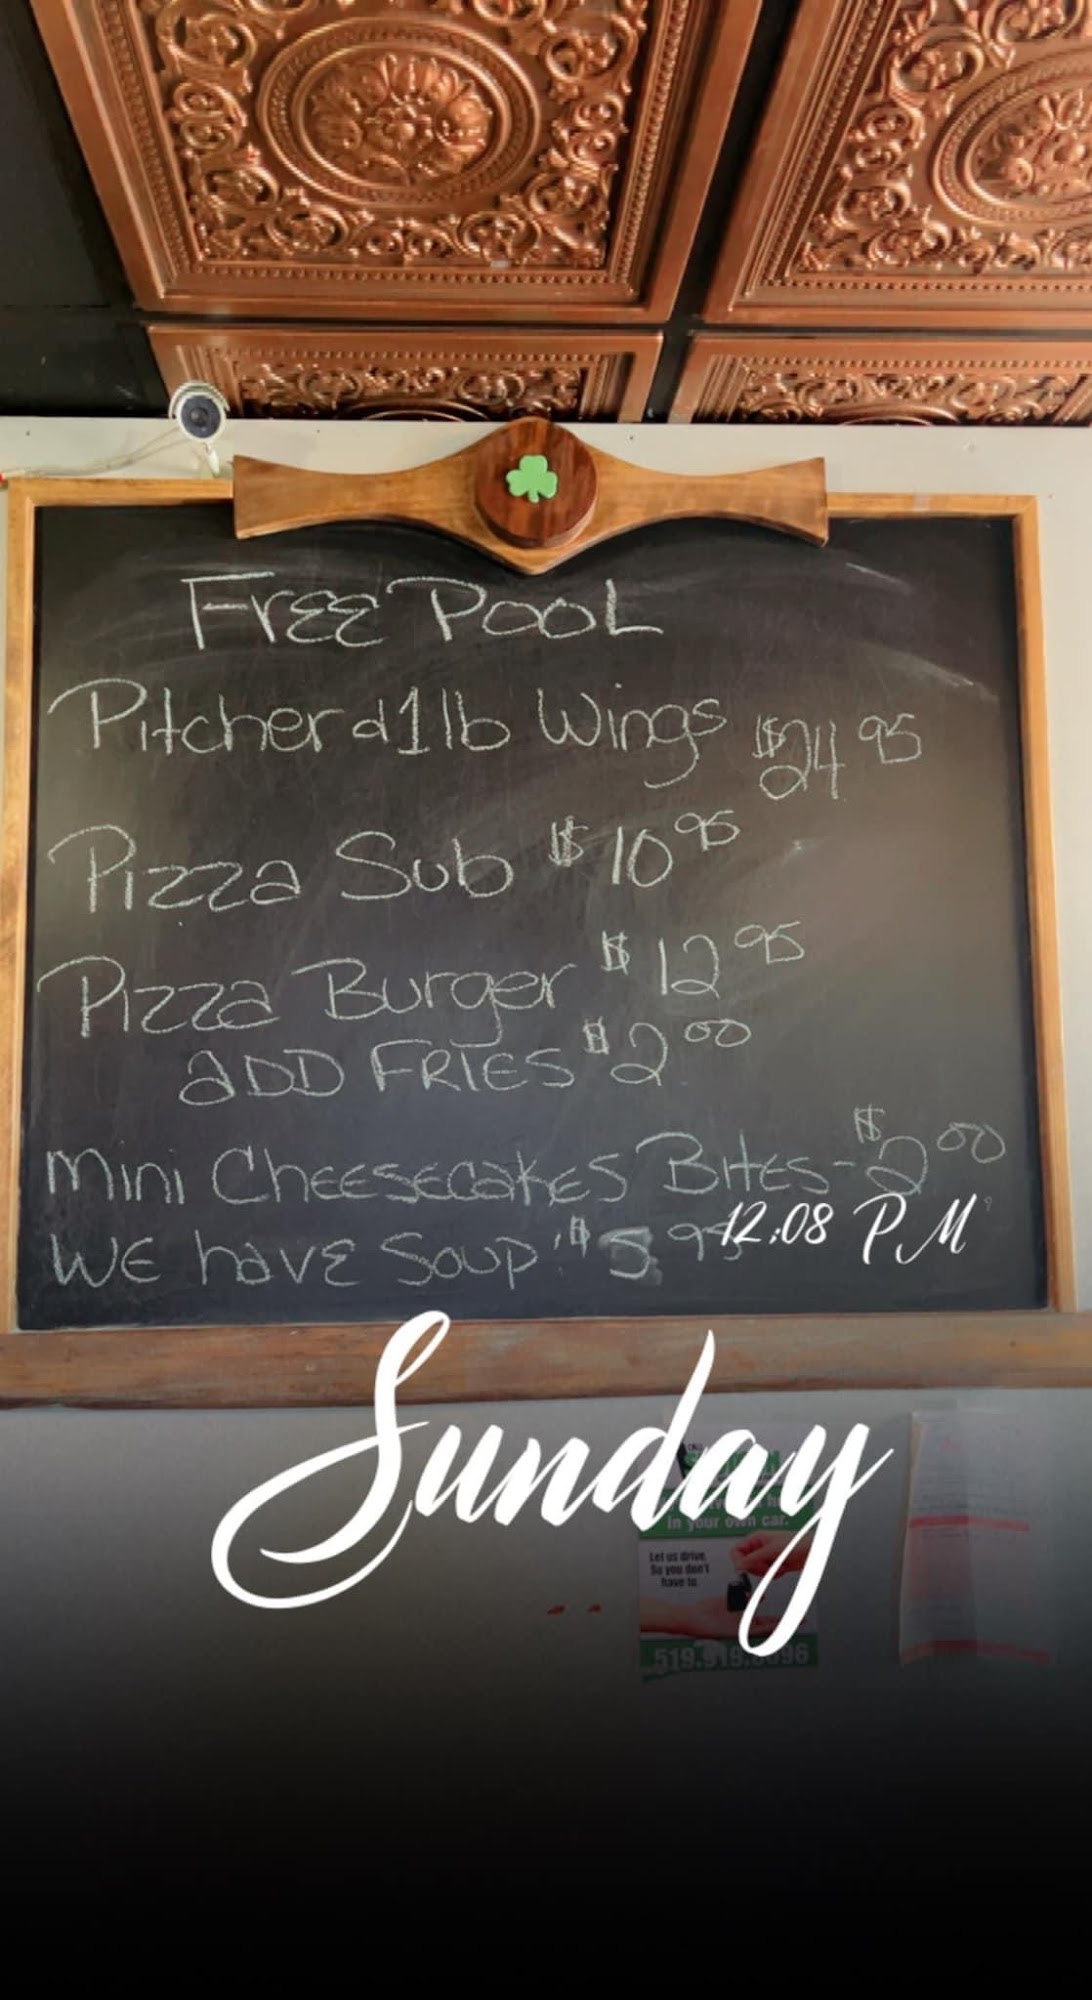 FREE POOL
Pitcher & 1 lb Wings $24 95
Pizza Sub $10 95
Pizza Burger $12 95
aDD FRIES $2 00
Mini CHEESECAKES BITES - $2 00
WE havE Soup! $5 95
12:08 PM
Sunday
CALL
in your own car.
Let us drive,
So you don't
have to.